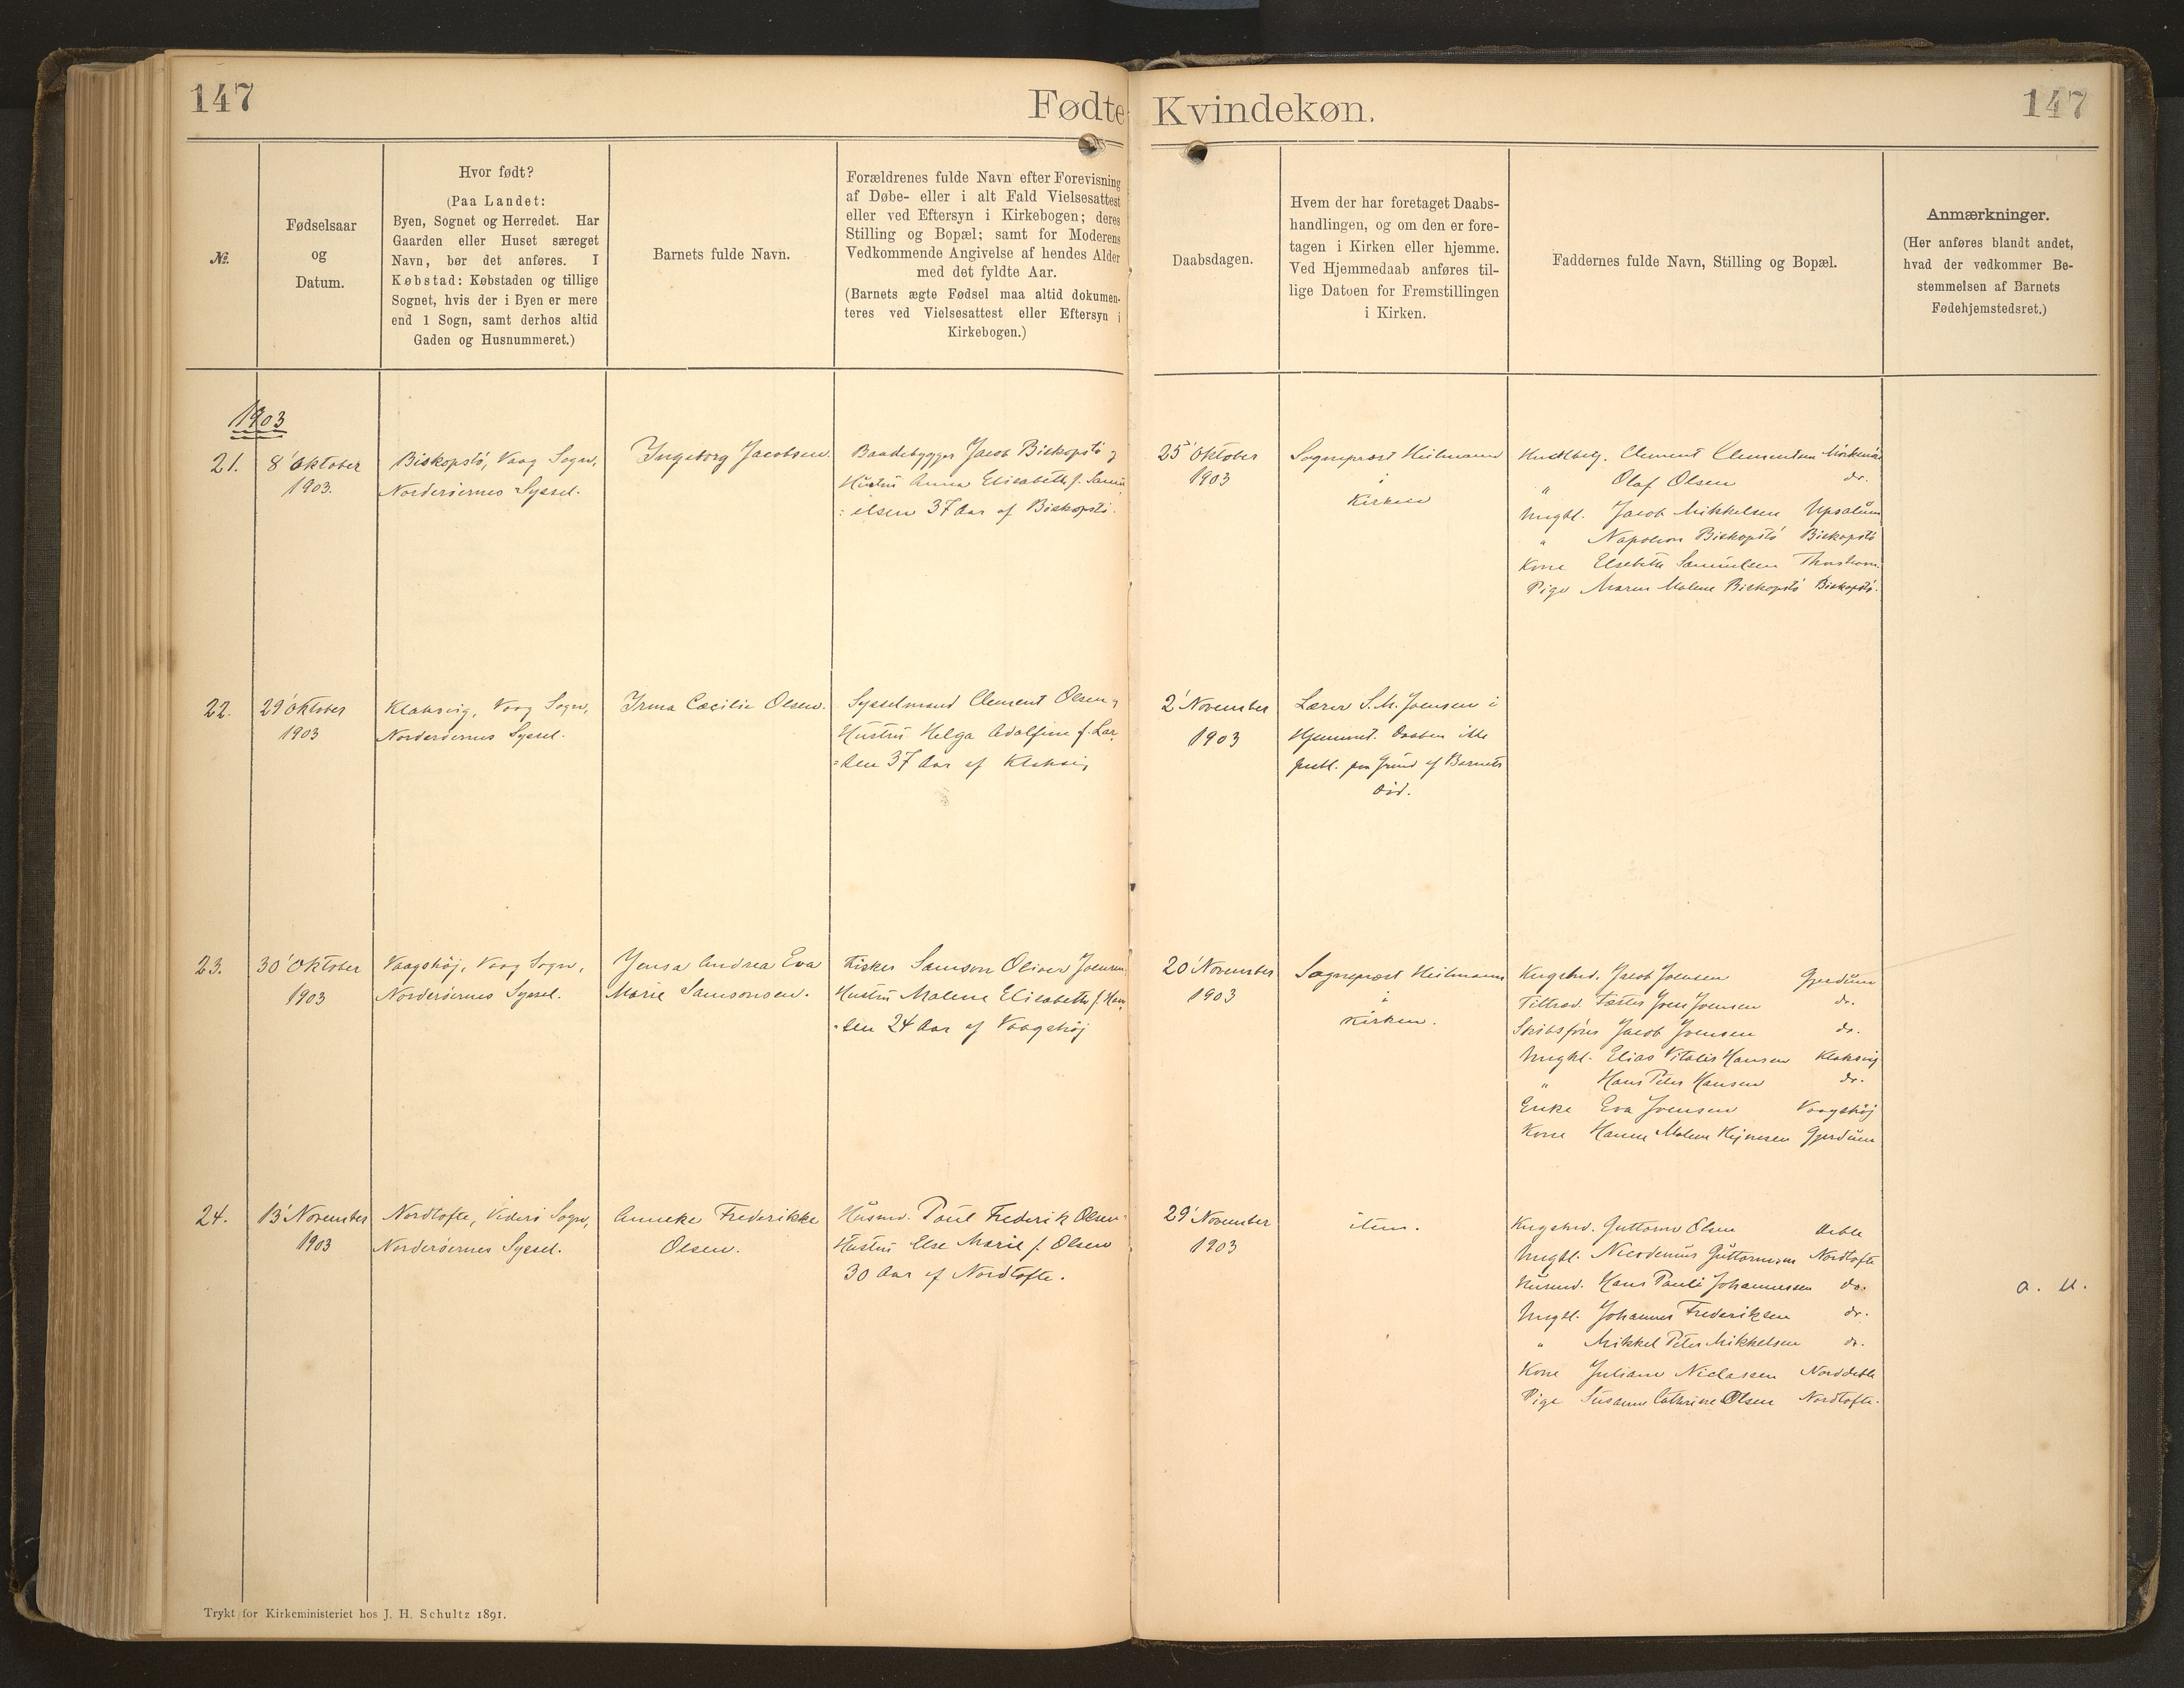 147
Fødte
Kvindekøn.
147
№.
Fødselsaar
og
Datum.
Hvor født?
(Paa Landet:
Byen, Sognet og Herredet. Har
Gaarden eller Huset særeget
Navn, bør det anføres. I
Købstad: Købstaden og tillige
Sognet, hvis der i Byen er mere
end 1 Sogn, samt derhos altid
Gaden og Husnummeret.)
Barnets fulde Navn.
Forældrenes fulde Navn efter Forevisning
af Døbe- eller i alt Fald Vielsesattest
eller ved Eftersyn i Kirkebogen; deres
Stilling og Bopæl; samt for Moderens
Vedkommende Angivelse af hendes Alder
med det fyldte Aar.
(Barnets ægte Fødsel maa altid dokumen-
teres ved Vielsesattest eller Eftersyn i
Kirkebogen.)
Daabsdagen.
Hvem der har foretaget Daabs-
handlingen, og om den er fore-
tagen i Kirken eller hjemme.
Ved Hjemmedaab anføres til-
lige Datoen for Fremstillingen
i Kirken.
Faddernes fulde Navn, Stilling og Bopæl.
Anmærkninger.
(Her anføres blandt andet,
hvad der vedkommer Be-
stemmelsen af Barnets
Fødehjemstedsret.)
1903
21.
8' Oktober
1903.
Biskopstö, Vaag Sogn,
Norderöernes Syssel.
Ingeborg Jacobsen.
Baadebygger Jacob Biskopstö og
Hustru Anna Elisabeth f. Samu
elsen 37 Aar af Biskopstö.
25' Oktober
1903
Sognepræst Heilmann
i
Kirken
Clement Clementsen
" Olaf Olsen do.
Ungkl. Jacob Mikkelsen
" Napoleon Biskopstö Biskopstö
Kone Elsebeth Samuelsen
Pige Maren Malene Biskopstö Biskopstö.
22.
29' Oktober
1903
Klaksvig, Vaag Sogn,
Norderöernes Syssel.
Irma Cæcilie Olsen.
Sysselmand Clement Olsen og
Hustru Helga Adolfine f. Lar
=sen 37 Aar af Klaksvig
2' November
1903
Lærer S. M. Joensen i
Hjemmet. Daaben ikke
publ. paa Grund af Barnets
Död.
23.
30' Oktober
1903
Vaagshöj, Vaag Sogn,
Norderöernes Syssel.
Jensa Andrea Eva
Marie Samsonsen.
Fisker Samson Oliver Joensen
Hustru Malene Elisabeth f. Han
=sen 24 Aar af Vaagshöj
20' November
1903
Sognepræst Heilmann
i
Kirken.
Kngsbd. Jacob Joensen Gjerdum
Joen Joensen do.
Skibsförer Jacob Joensen do.
Ungkl. Elias Vitalis Hansen Klaksvig
" Hans Peter Hansen do.
Enke Eva Joensen Vaagshöj
Kone Hanne Malene Gjerdum
24.
13' November
1903
Nordtofte, Viderö Sogn,
Norderöernes Syssel.
Anneke Frederikke
Olsen.
Husmd. Poul Frederik Olsen
Hustru Else Marie f. Olsen
30 Aar af Nordtofte.
29' November
1903
item.
Kngsbd. Guttorm Olsen
Ungkl. Nicodemus Guttormsen Nordtofte
Husmd. Hans Pauli Johannessen do.
Ungkl. Johannes Frederiksen do.
" Mikkel Peter Mikkelsen do.
Kone Juliane Niclassen Norddeble
Pige Susanne Cathrine Olsen Nordtofte.
a. u.
Trykt for Kirkeministeriet hos J. H. Schultz 1891.